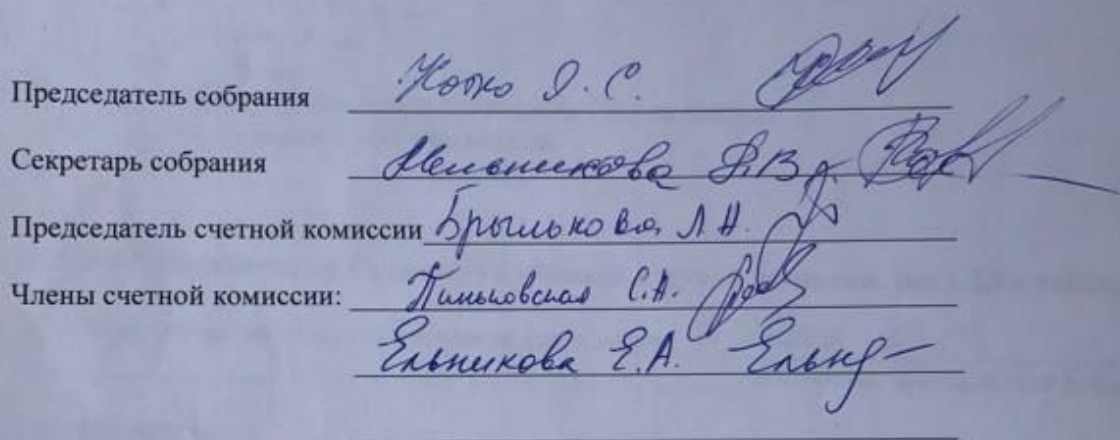 Председатель собрания Нотко Я. С.
Секретарь собрания Мельникова Я.В.
Председатель счетной комиссии Брылькова Л.Н.
Члены счетной комиссии: Пиньковская С.А.
Ельникова Е.А. Ельн